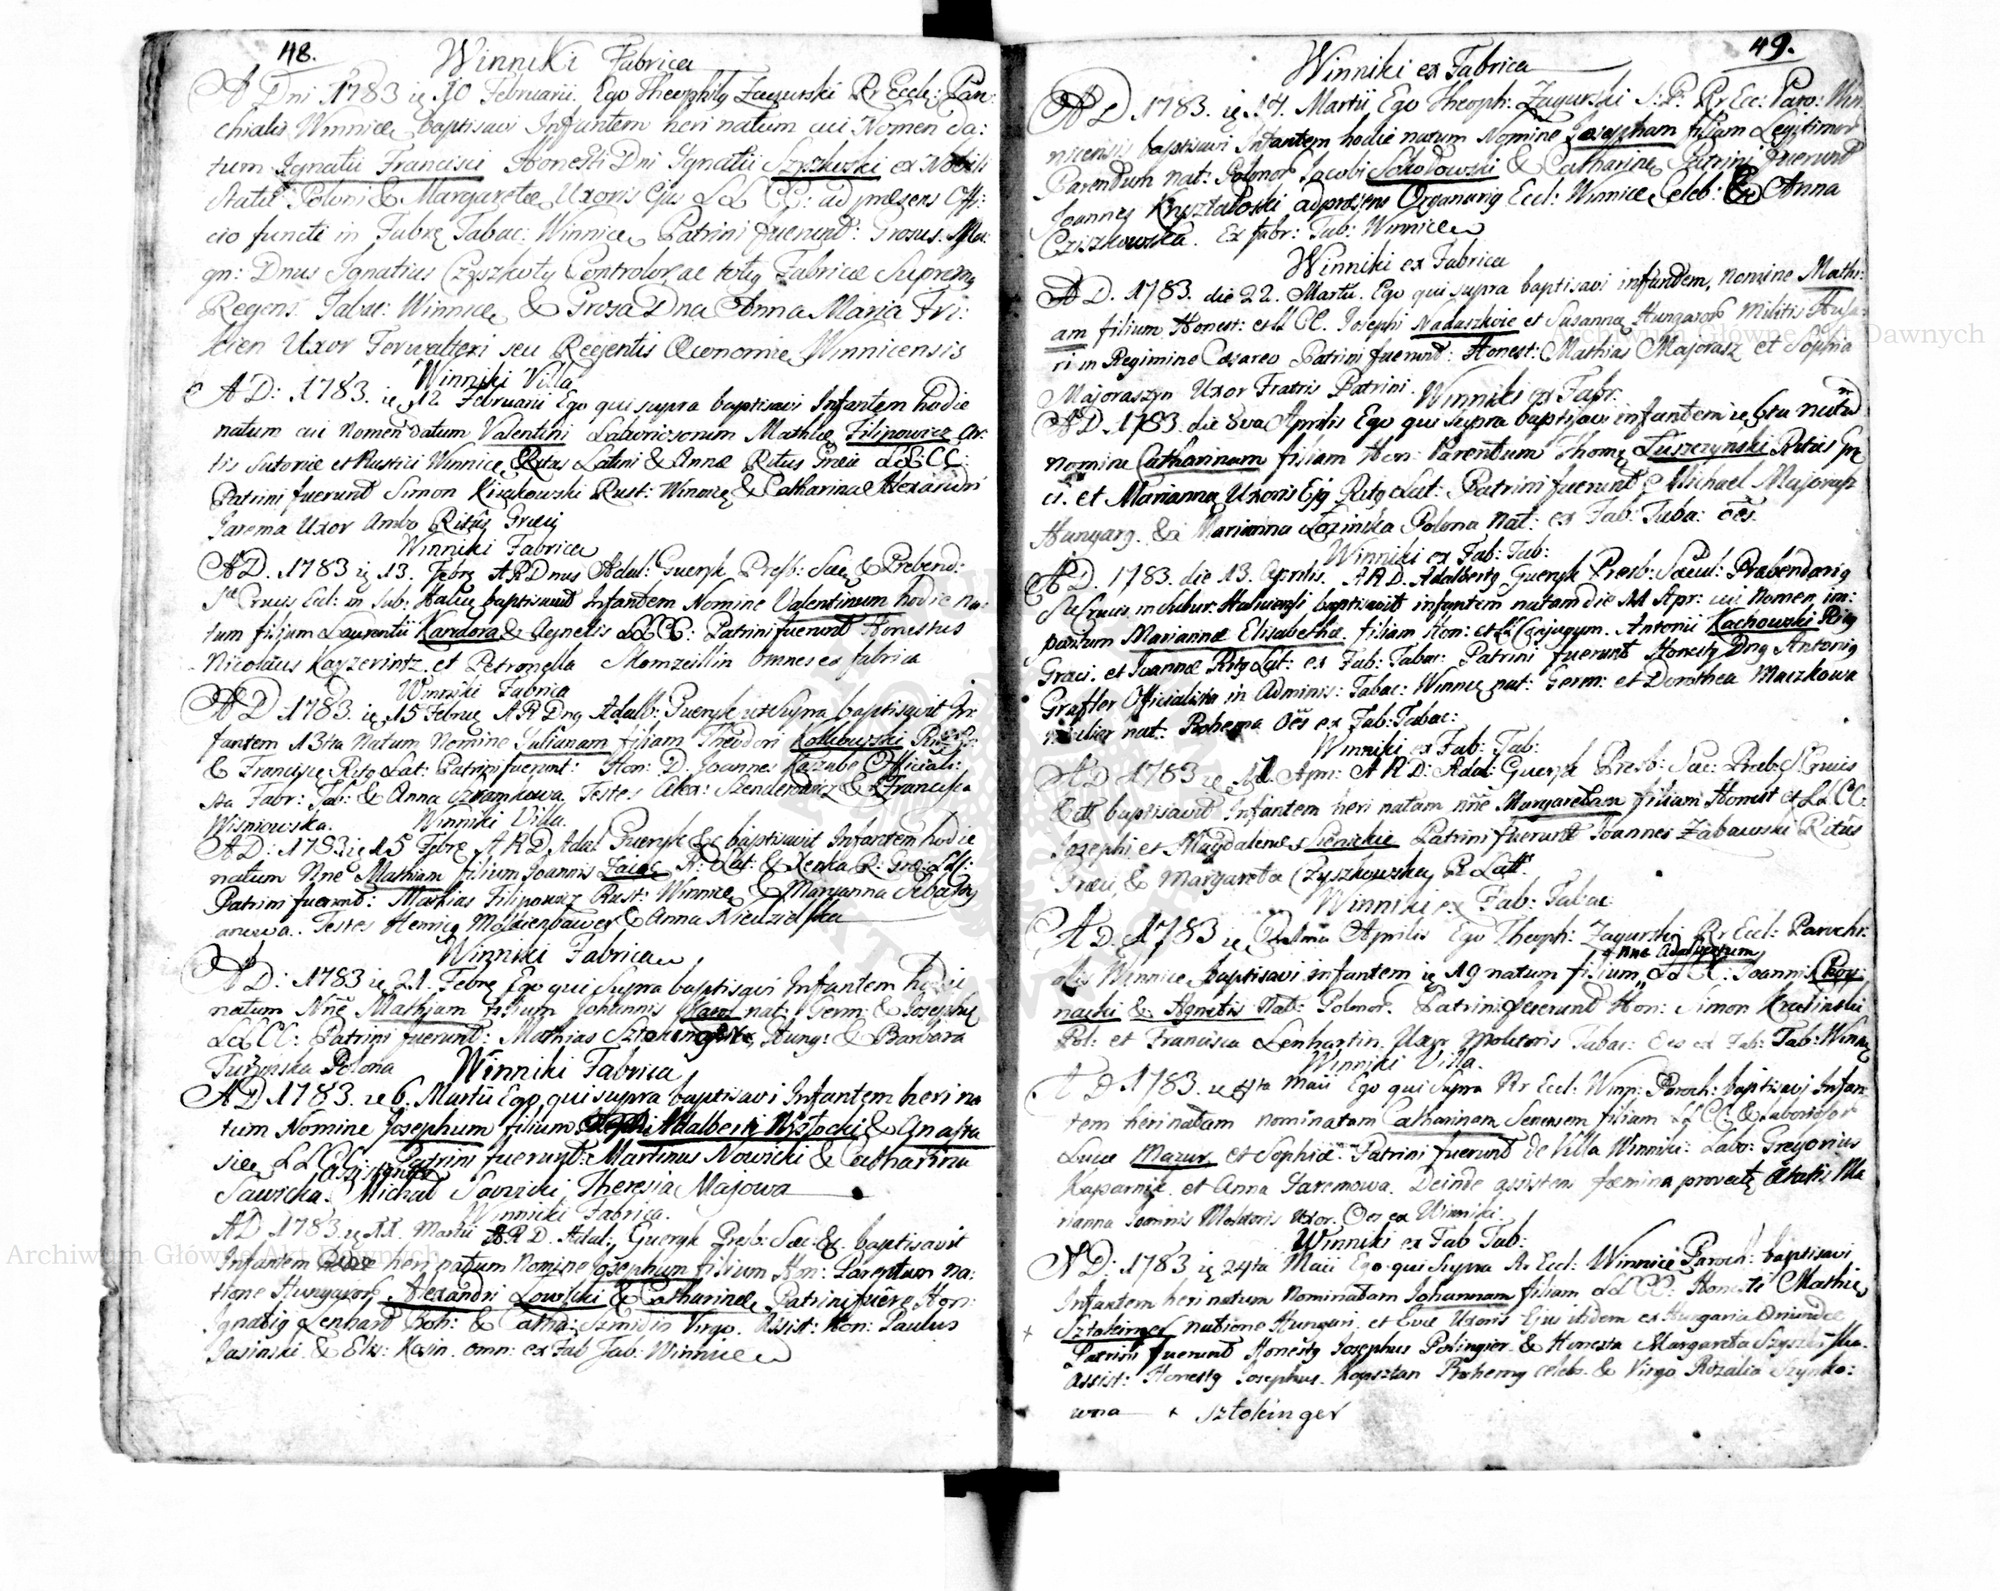 48.
Winniki Fabrica
A Dni 1783 ię 10 Februarii. Ego Theophilg Zagurski Rr Eccle: Par:
chialis Winnice Baptisavi Infantem heri natum cui Nomen da:
tum Ignatii Francisci Honesti Dni Ignatii Szyszkoski ex Nobili
Statu Poloni & Margaretæ Uxoris Ejus LL CC: ad præsens Offi:
cio functi in Fabrę Tabac: Winnice Patrini fuerunt: Grosus. Ma:
gn: Dnus Ignatius Czyszkoty Controlor, ac totg Fabricæ Supremg
Regens Tabac: Winnice & Groza Dna Anna Maria Fri:
Uxor Ferwalteri seu Regentis Œconomiæ Winnicensis
Winniki Villa
AD: 1783. ię 12 Februarii Ego qui supra baptisavi Infantem hodie
natum cui nomen datum Valentini Laboriosorum Mathiæ Filipowicz Ar:
tis Sutoriæ et Rustici Winnice Ritus Latini & Annæ Ritus Græci LLCC:
Patrini fuerunt Simon Kiczkowski Rust: Winnice & Catharina Alexandri
Jarema Uxor Ambo Ritûs Græci
Winniki Fabrica
AD. 1783 ię 13. Febrę ARDnus Adal: Gueryk Presb: Sæc & Prebend:
Stæ Crucis Ecl: in Sub: Halic baptisavit Infantem Nomine Valentinum hodie na:
tum filium Laurentii Kandora & Agnetis LLCC: Patrini fuerunt Honestus
Nicolaus Kayzerintz et Petronella Mamzeillin omnes ex fabrica
Winniki Fabrica
AD 1783. ię 15 Februę ARDng Adalb: Gueryk ut supra baptisavit In:
fantem 13tia Natum Nomine Julianam filiam Theodori Kollubuszki
& Franciscę Ritg Lat: Patrini fuerunt: Hon: D. Joannes Kazube Official:
sta Fabr: Tab: & Anna Czramkowa Testes Alex: Szenderowicz & Francisca
Wisniowska.
Winniki Villa.
AD: 1783 ię 15 Febrę ARD Adal Gueryk & baptisavit Infantem hodie
natum Nne Mathiam filium Joannis Zaiąc R: Lat: & Xenka R: Græ: LLCC:
Patrini fuerunt: Mathias Filipowicz Rust: Winnice & Marianna Sebasty
anowa. Testes Henrig Moldrenbawer & Anna Niedzielska
Winniki Fabrica
AD: 1783 ię 21. Febrę Ego qui Supra baptisavi Infantem hodie
natum Nne Mathiam filium Johannis Karol nat: Germ: & Josephę
LLCC: Patrini fuerunt: Mathias Hung: & Barbara
Turzinska Polona
Winniki Fabrica
AD 1783. ię 6. Martii Ego qui supra baptisavi Infantem heri na
tum Nomine Josephum filium Adalberti Wysłocki & Anasta
siæ LLCC: Patrini fuerunt: Martinus Nowicki & Catharina
Sawicka. Assistentes Michał Sawicki, Theresia Majowa
Winniki Fabrica.
AD 1783. ię 11. Martii ARD. Adal: Gueryk Presb: Sæc &. baptisavit
Infantem heri natum Nomine Josephum filium Hon: Parentum na:
tione Hungaror, Alexandri Lowicki & Catharinæ, Patrini fuêre Hon:
Ignatig Lenhard Boh: & Catha: Szmidin Virgo. Assist: Hon: Paulus
Jasinski & Elis: Kasin. omn: ex Fab Tab: Winnice
49.
Winniki ex Fabrica
AD 1783. ię 14. Martii Ego Theoph: Zagurski S: P: Rr Ecc: Paro: Win
nicensis baptisavi Infantem hodie natum Nomine Josepham filiam Legitimor
Parentum nat: Polonor Jacobi Sokołowski & Catharinæ Patrini fuerunt
Joannes Krysztaloski adpræsens Organarig Eccl: Winnice Celeb: & Anna
Cziszkowska. Ex fabr: Tab: Winnice
Winniki ex Fabrica
AD. 1783. die 22. Martii. Ego qui supra baptisavi infantem, nomine Mathi:
am filium Honest: et LL CC. Josephi Nadaszkvie et Susannæ Hungaror Militis Husa:
ri in Regimine Cæsareo Patrini fuerunt: Honest: Mathias Majorasz et Sophia
Majoraszyn Uxor Fratris Patrini.
Winniki ex Fabr.
AD. 1783. die 8va Aprilis Ego qui supra baptisavi infantem ię 6ta natam
nomine Catharinam filiam Hon: Parentum Thomę Luszczynski Ritus Grę
ci. et Mariannę Uxoris Ejg Ritg Lat: Patrini fuerunt Michael Majorasz
Hungarg. & Marianna Łozinska Polona Nat: ex Fab: Taba: oēs.
Winniki ex Fab: Tab:
AD. 1783. die 13. Aprilis. ARD. Adalbertg Gueryk Presb: Sæcul: Præbendarig
S Crucis in Subur: Halicensi baptisavit infantem natam die 11 Apr: cui nomen im:
positum Mariannæ Elisabethæ filiam Hon: et LL Conjugum. Antonii Kachowski Ritg
Græci. et Joannæ Ritg Lat: ex Fab: Tabac: Patrini fuerunt Honestg Dng Antonig
Grafler Officialista in Adminis: Tabac: Winnice nat: Germ: et Dorothea Maczkowa
mulier nat: Bohema Oēs ex Fab: Tabac:
Winniki ex Fab: Tab:
AD 1783 ię Apri: ARD: Adal: Gueryk Presb: Sæc: Preb: S Crucis
baptisavit Infantem heri natam nne Margaretam filiam Honest et LLCC
Josephi et Magdalenæ Sieńickie Patrini fuerunt Joannes Zabawski Ritûs
Græci, & Margareta Czyszkowska R Latt.
Winniki ex Fab: Tabac
AD. 1783 ię Aprilis Ego Theoph: Zagurski Rr Eccl: Parochi:
nne Adalbertum
alis Winnice baptisavi infantem ię 19 natum filium LLCC: Joannis
nacki & Agnetis Nat: Polonor. Patrini fuerunt Hon: Simon Krasinski
Pol: et Francisca Lenhartin Uxor Molitoris Tabac: Oes ex Fab: Tab: Winnice
Winniki Villa.
AD. 1783. ię 4ta Maii Ego qui supra Rr Eccl: Winn: Paroch: baptisavi Infan
tem heri natam nominatam Catharinam Senensem filiam LLCC & Laborior
Lucæ Mazur et Sophiæ. Patrini fuerunt de Villa Winniki: Labo: Gregorius
Kaparnik et Anna Jaremowa. Deinde assistens fœmina provectę ætatis Ma
rianna Joannis Molitoris Uxor. Oes ex Winniki.
Winniki ex Fab Tab:
AD: 1783 ię 24ta Maii Ego qui Supra Rr Eccl: Winnice Paroch: baptisavi
Infantem heri natum Nominatam Johannam filiam LLCC: Honesti Mathiæ
+ Sztokinger natione Hungari. et Evæ Uxoris Ejus itidem ex Hungaria oriundæ
Patrini fuerunt Honestg Josephus Polingier & Honesta Margareta Szyszkoska.
Assist: Honestg Josephus. Kapsztan Bohemg Celeb: & Virgo Rozalia Szynko:
wna + Sztokinger
Archiwum Główne Akt Dawnych
Archiwum Główne Akt Dawnych